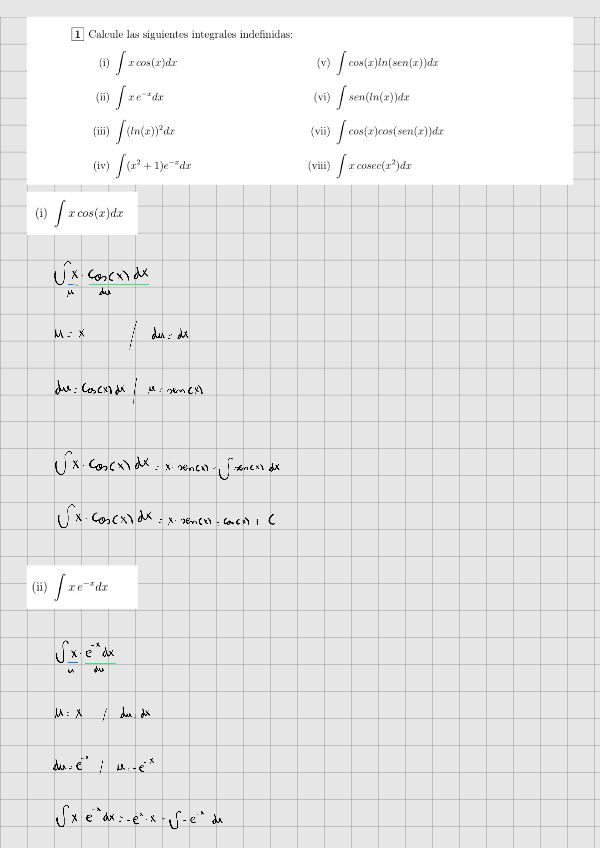 1 Calcule las siguientes integrales indefinidas:
(i) ∫ x cos(x)dx
(v) ∫ cos(x)ln(sen(x))dx
(ii) ∫ x e^{-x}dx
(vi) ∫ sen(ln(x))dx
(iii) ∫ (ln(x))²dx
(vii) ∫ cos(x)cos(sen(x))dx
(iv) ∫ (x² + 1)e^{-x}dx
(viii) ∫ x cosec(x²)dx
(i) ∫ x cos(x)dx
∫ x · cos(x) dx
u dv
u = x / du = dx
dv = cos(x) dx / v = sen(x)
∫ x · cos(x) dx = x · sen(x) - ∫ sen(x) dx
∫ x · cos(x) dx = x · sen(x) + cos(x) + C
(ii) ∫ x e^{-x}dx
∫ x · e^{-x} dx
u dv
u = x / du = dx
dv = e^{-x} / v = -e^{-x}
∫ x · e^{-x} dx = -e^{-x} · x - ∫ -e^{-x} dx